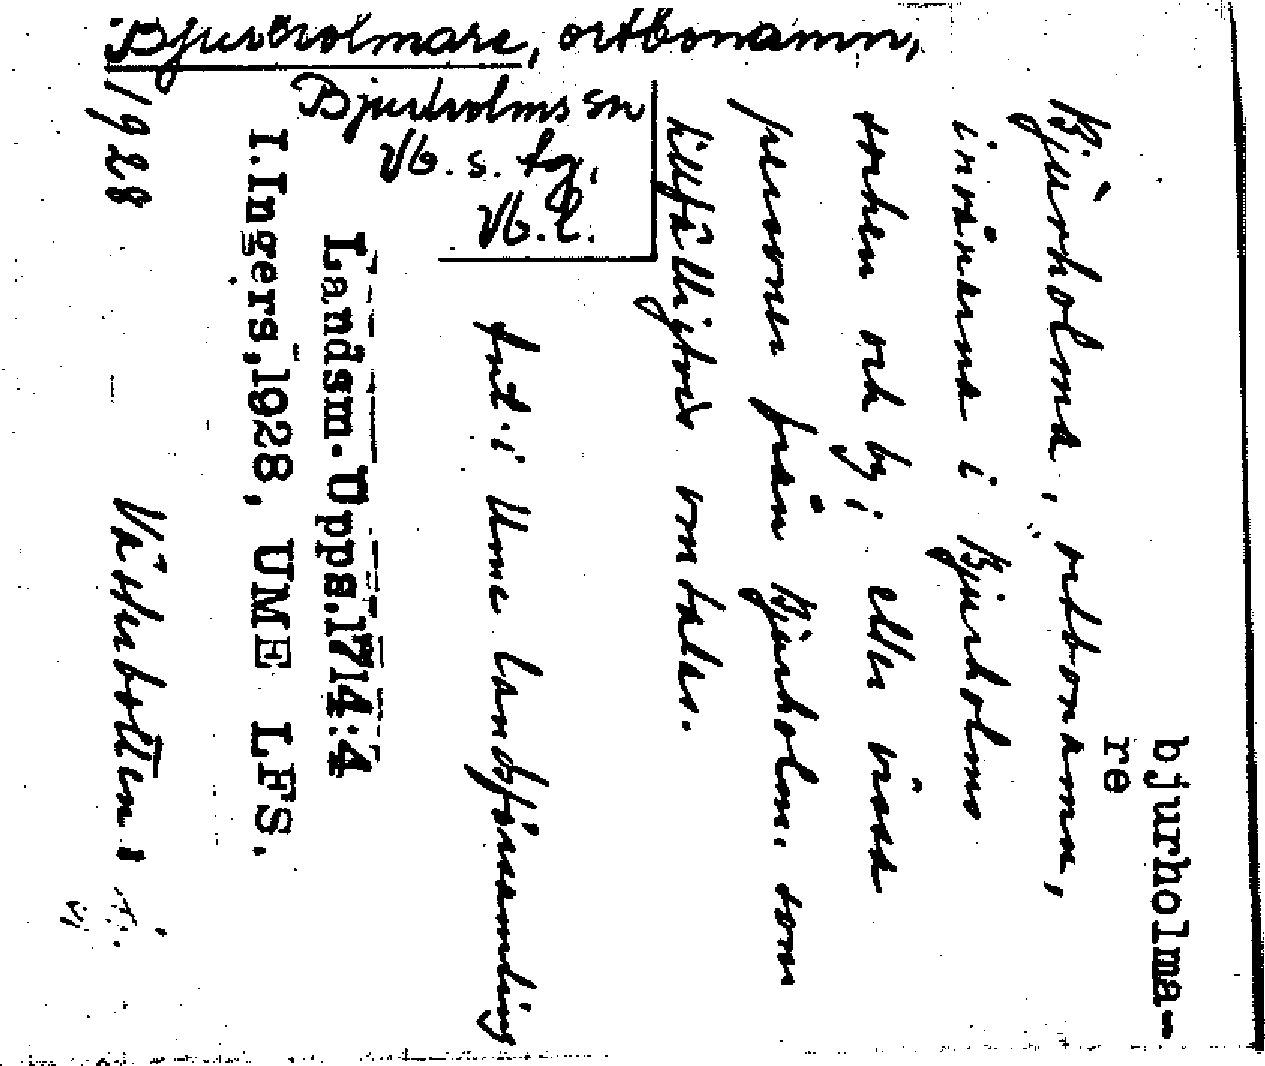 Bjurholmare, ortbonamn,
Bjurholms sn
Vb. s. fg.
Vb. l.
bjurholma-
re
Bjurholma, ortbonamn,
invånarna i Bjurholms
socken och by; eller vissa
personer från Bjurholm, som
tillfälligtvis omtalas.
Ant. i Umeå landsförsamling
Landsm. Upps. 1714:4
I. Ingers, 1928, UME LFS.
1928 Västerbotten